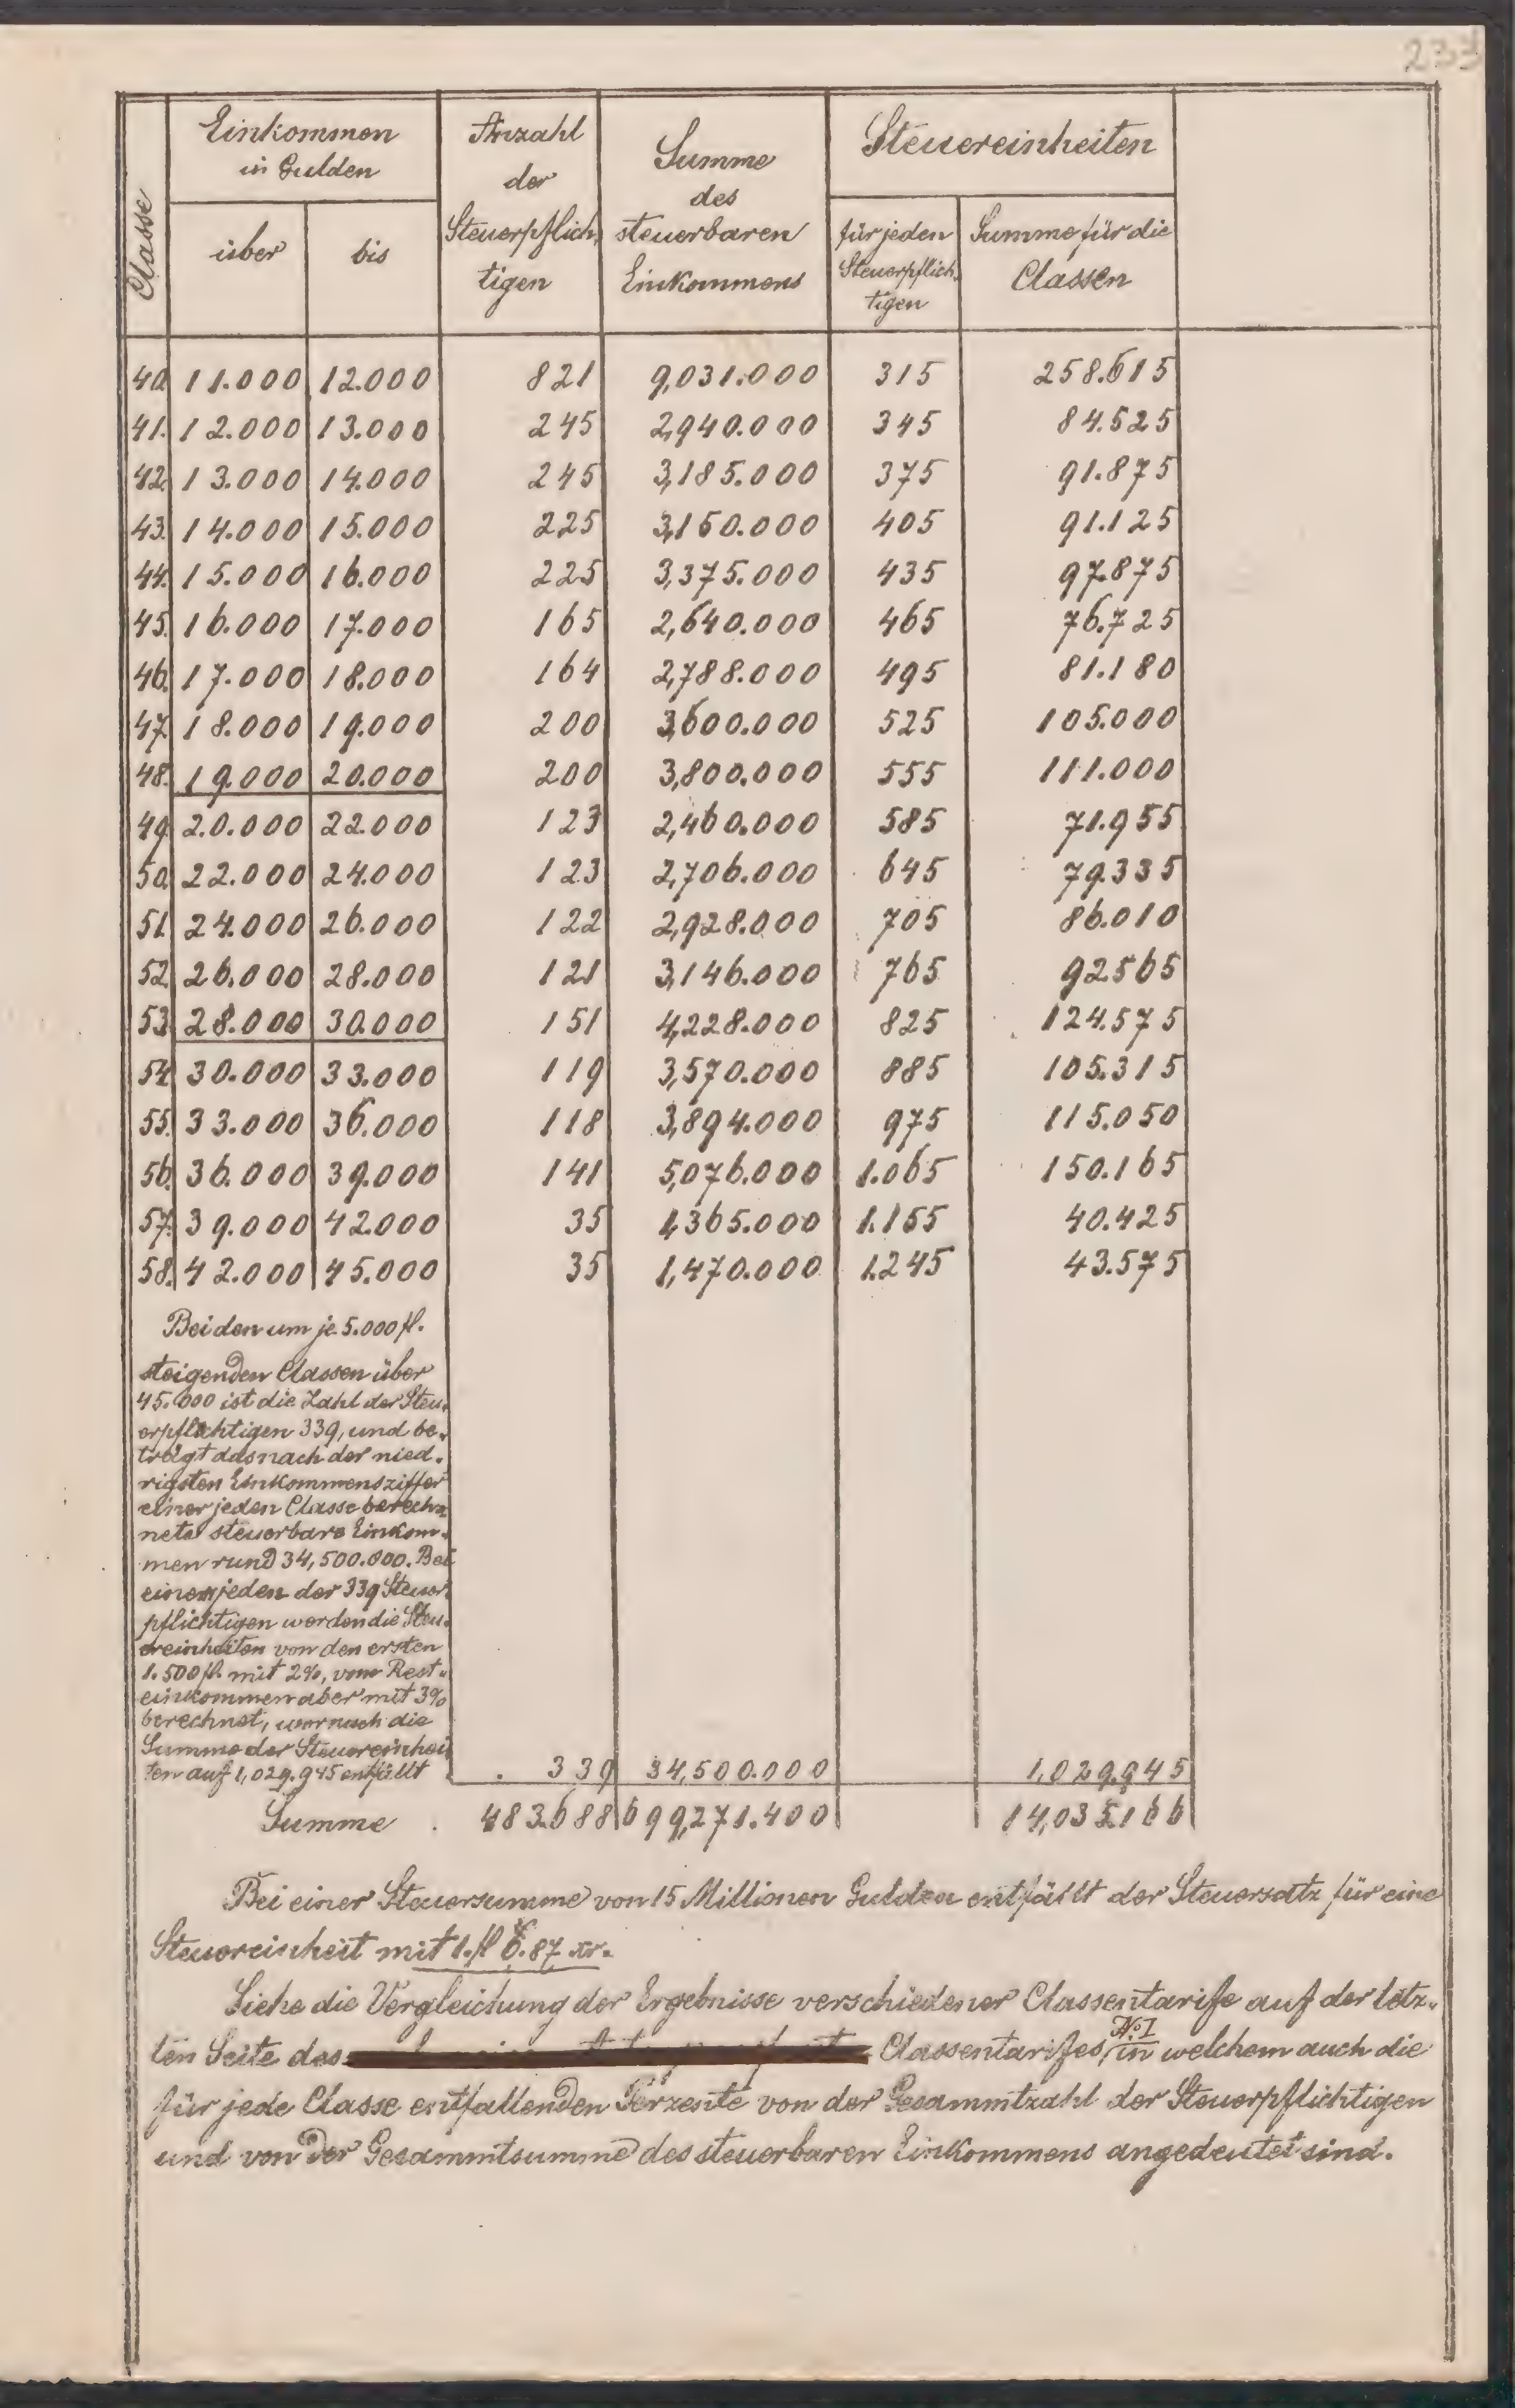 233
Classe
Einkommen
in Gulden
über bis
Anzahl
der
Steuerpflich-
tigen
Summe
des
steuerbaren
Einkommens
Steuereinheiten
für jeden
Steuerpflich-
tigen
Summe für die
Classen
40. 11.000 12.000 821 9,031.000 315 258.615
41. 12.000 13.000 245 2,940.000 345 84.525
42. 13.000 14.000 245 3,185.000 375 91.875
43. 14.000 15.000 225 3,150.000 405 91.125
44. 15.000 16.000 225 3,375.000 435 97.875
45. 16.000 17.000 165 2,640.000 465 76.725
46. 17.000 18.000 164 2,788.000 495 81.180
47. 18.000 19.000 200 3,600.000 525 105.000
48. 19.000 20.000 200 3,800.000 555 111.000
49. 20.000 22.000 123 2,460.000 585 71.955
50. 22.000 24.000 123 2,706.000 645 79.335
51. 24.000 26.000 122 2,928.000 705 86.010
52. 26.000 28.000 121 3,146.000 765 92.565
53. 28.000 30.000 151 4,228.000 825 124.575
54. 30.000 33.000 119 3,570.000 885 105.315
55. 33.000 36.000 118 3,894.000 975 115.050
56. 36.000 39.000 141 5,076.000 1.065 150.165
57. 39.000 42.000 35 1,365.000 1.155 40.425
58. 42.000 45.000 35 1,470.000 1.245 43.575
Bei den um je 5.000 fl.
steigenden Classen über
45.000 ist die Zahl der Steu-
erpflichtigen 339, und be-
trägt das nach der nied-
rigsten Einkommensziffer
einer jeden Classe berech-
nete steuerbare Einkom-
men rund 34,500.000. Bei
einem jeden der 339 Steuer-
pflichtigen werden die Steu-
ereinheiten von den ersten
1.500 fl. mit 2%, vom Rest-
einkommen aber mit 3%
berechnet, wornach die
Summe der Steuereinhei-
ten auf 1,029.945 entfällt . 339 34,500.000 1,029.945
Summe . 483.688 699,271.400 14,035.166
Bei einer Steuersumme von 15 Millionen Gulden entfällt der Steuersatz für eine
Steuereinheit mit 1.fl 6.87 xr.
Siehe die Vergleichung der Ergebnisse verschiedener Classentarife auf der letz-
ten Seite des Classentarifes, No I in welchem auch die
für jede Classe entfallenden Perzente von der Gesammtzahl der Steuerpflichtigen
und von der Gesammtsumme des steuerbaren Einkommens angedeutet sind.